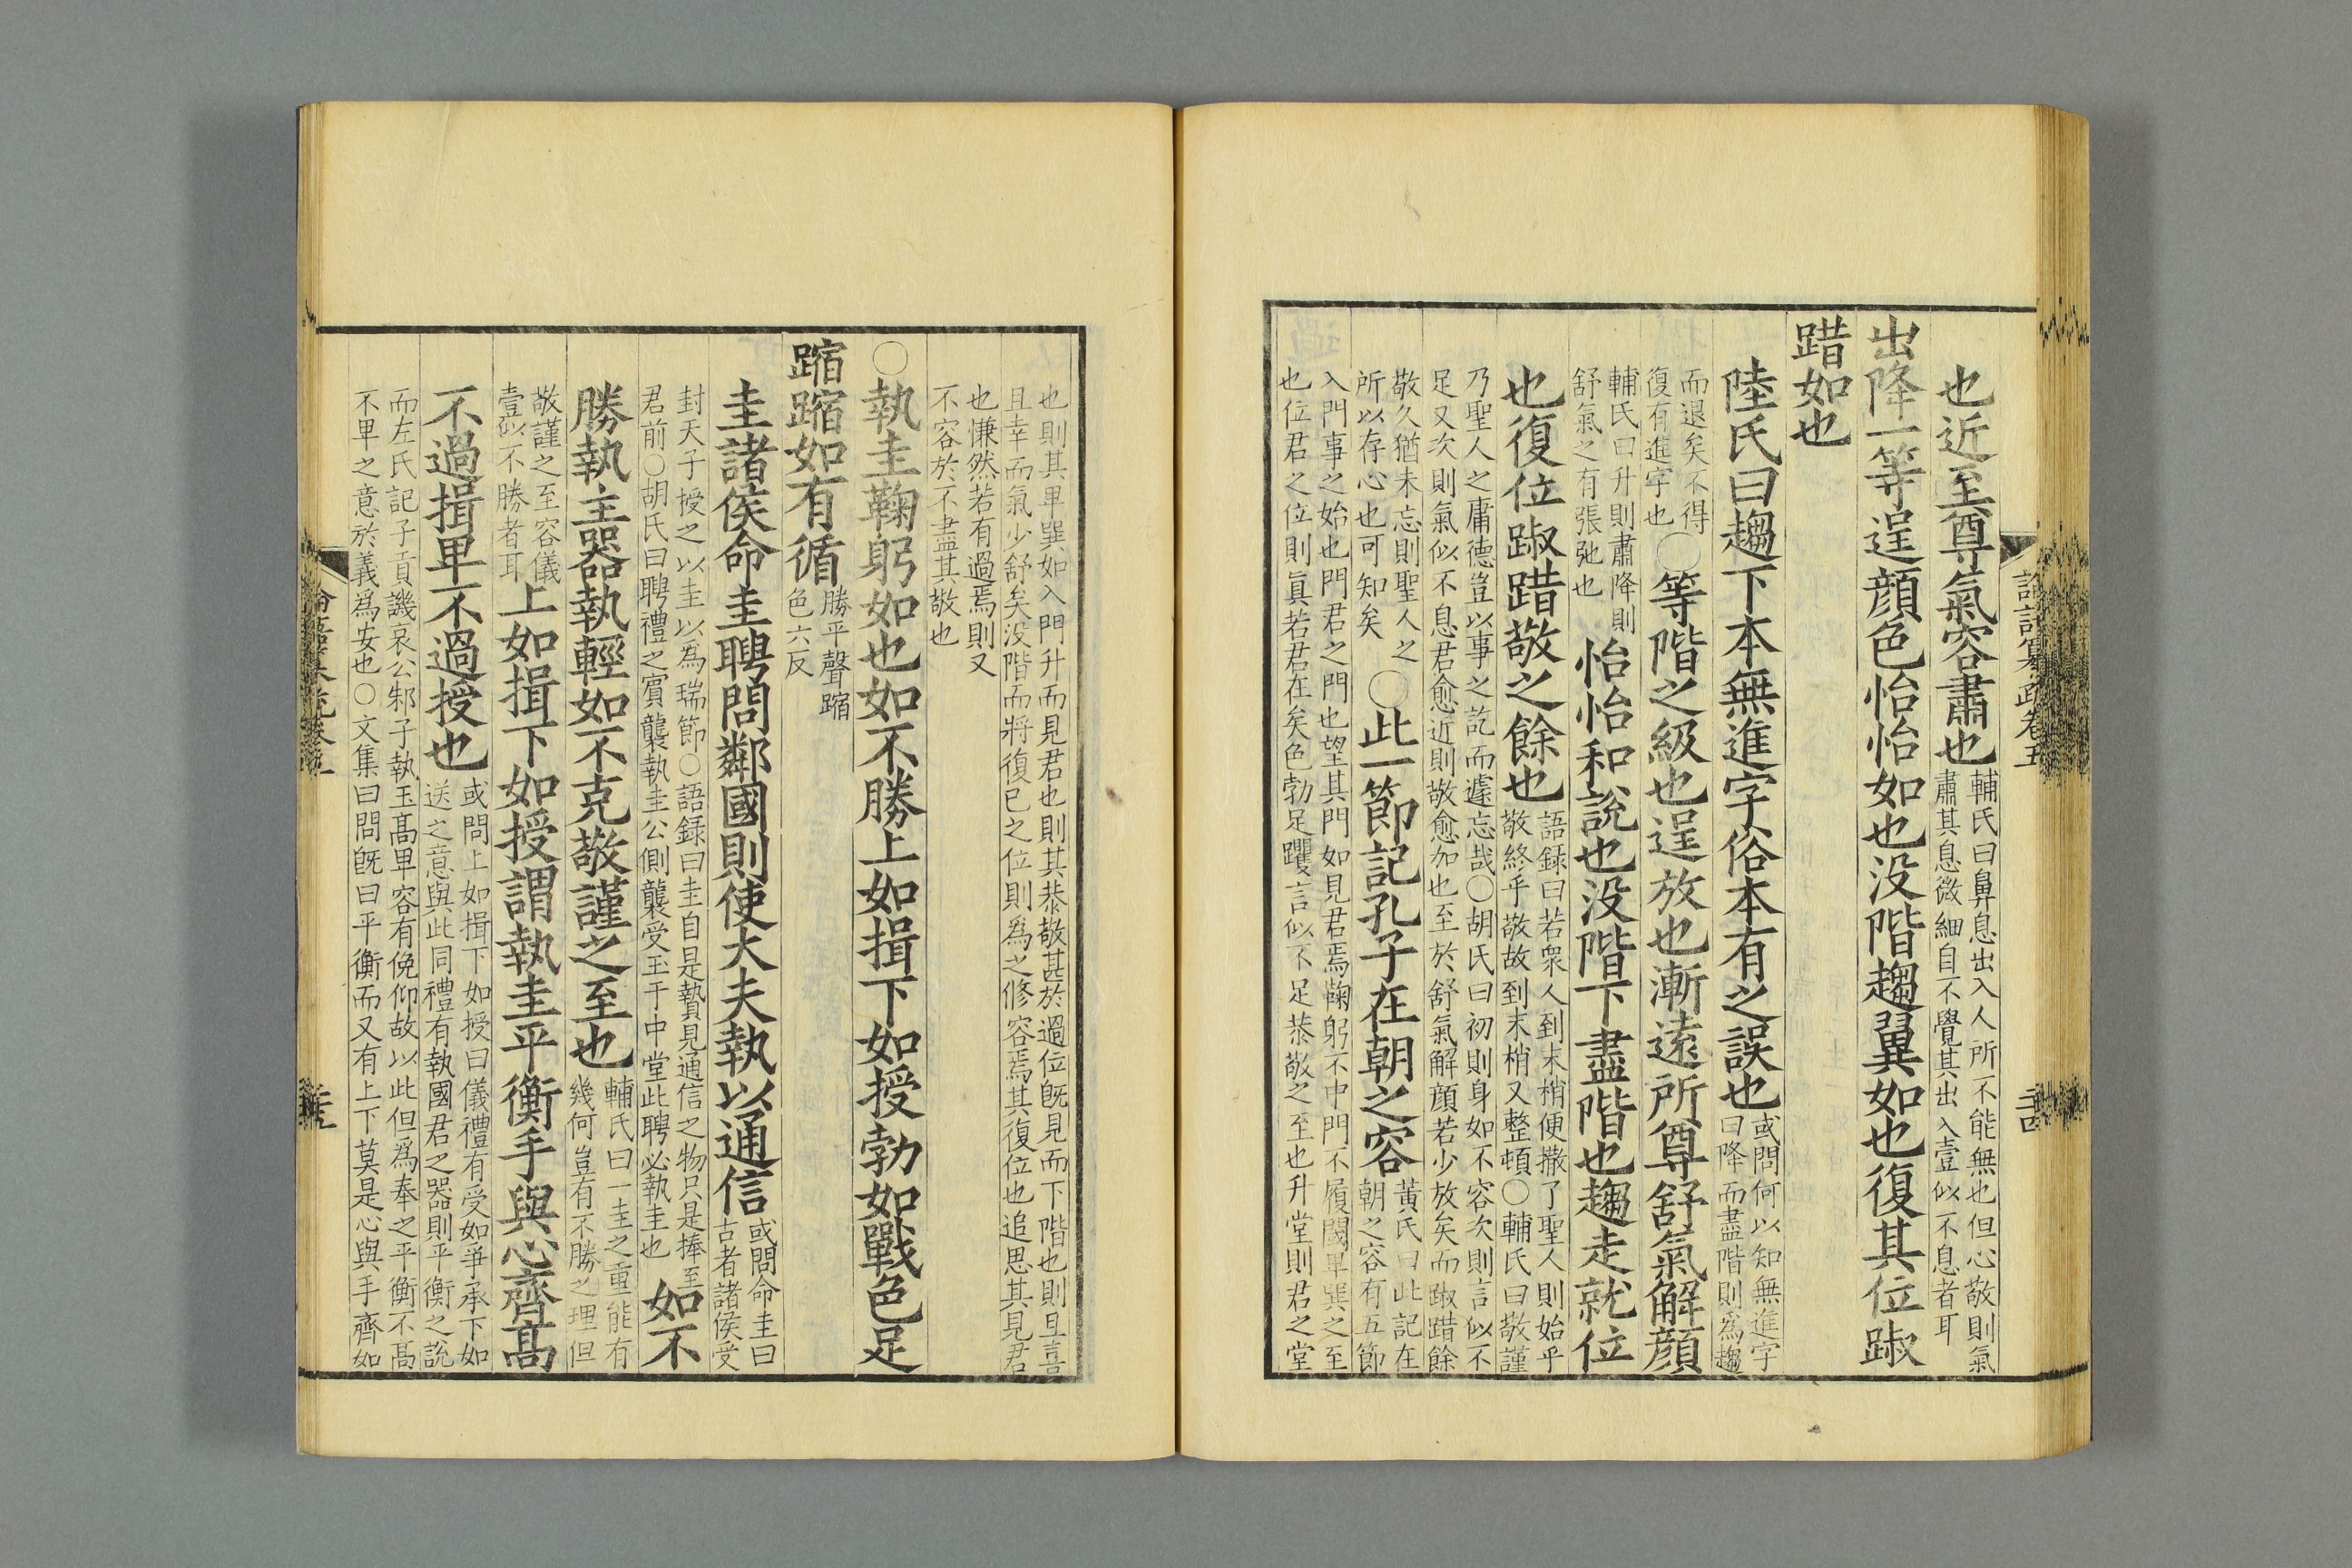 論語纂疏卷五
二十四
也近至尊氣容肅也
輔氏曰鼻息出入人所不能無也但心敬則氣
肅其息微細自不覺其出入壹似不息者耳
出降一等逞顔色怡怡如也没階趨翼如也復其位踧
踖如也
陸氏曰趨下本無進字俗本有之誤也
或問何以知無進字
曰降而盡階則為趨
而退矣不得
復有進字也
○等階之級也逞放也漸遠所尊舒氣解顔
輔氏曰升則肅降則
舒氣之有張弛也
怡怡和說也没階下盡階也趨走就位
也復位踧踖敬之餘也
語録曰若衆人到末梢便撒了聖人則始乎
敬終乎敬故到末梢又整頓○輔氏曰敬謹
乃聖人之庸德豈以事之訖而遽忘哉○胡氏曰初則身如不容次則言似不
足又次則氣似不息君愈近則敬愈加也至於舒氣解顔若少放矣而踧踖餘
敬久猶未忘則聖人之
所以存心也可知矣
○此一節記孔子在朝之容
黃氏曰此記在
朝之容有五節
入門事之始也門君之門也望其門如見君焉鞠躬不中門不履閾卑巽之至
也位君之位則眞若君在矣色勃足躩言似不足恭敬之至也升堂則君之堂
也則其卑巽如入門升而見君也則其恭敬甚於過位旣見而下階也則且喜
且幸而氣少舒矣没階而將復已之位則為之修容焉其復位也追思其見君
也慊然若有過焉則又
不容於不盡其敬也
○執圭鞠躬如也如不勝上如揖下如授勃如戰色足
蹜蹜如有循
勝平聲蹜
色六反
圭諸侯命圭聘問鄰國則使大夫執以通信
或問命圭曰
古者諸侯受
封天子授之以圭以為瑞節○語録曰圭自是贄見通信之物只是捧至
君前○胡氏曰聘禮之賓襲執圭公側襲受玉于中堂此聘必執圭也
如不
勝執主器執輕如不克敬謹之至也
輔氏曰一圭之重能有
幾何豈有不勝之理但
敬謹之至容儀
壹似不勝者耳
上如揖下如授謂執圭平衡手與心齊高
不過揖卑不過授也
或問上如揖下如授曰儀禮有受如爭承下如
送之意與此同禮有執國君之器則平衡之說
而左氏記子貢譏哀公邾子執玉髙卑容有俛仰故以此但為奉之平衡不髙
不卑之意於義為安也○文集曰問旣曰平衡而又有上下莫是心與手齊如